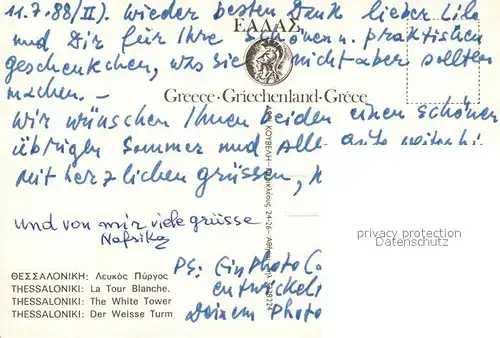 11.7.88/II). Wieder besten Dank lieber
und Dir für Ihre schönen u. praktischen
ΕΛΛΑΣ
geschenkchen, was sie nicht aber sollten
machen. –
Greece · Griechenland · Grèce
Wir wünschen Ihnen beiden einen schönen
übrigen Sommer und alles gute
mit herzlichen grüssen,
und von mir viele grüsse
Nafsika
privacy protection
www.ansichtskartenversand.com
ΘΕΣΣΑΛΟΝΙΚΗ: Λευκός Πύργος
THESSALONIKI: La Tour Blanche.
THESSALONIKI: The White Tower
THESSALONIKI: Der Weisse Turm
PS: Ein Photo
entwickel
Deinem Photo